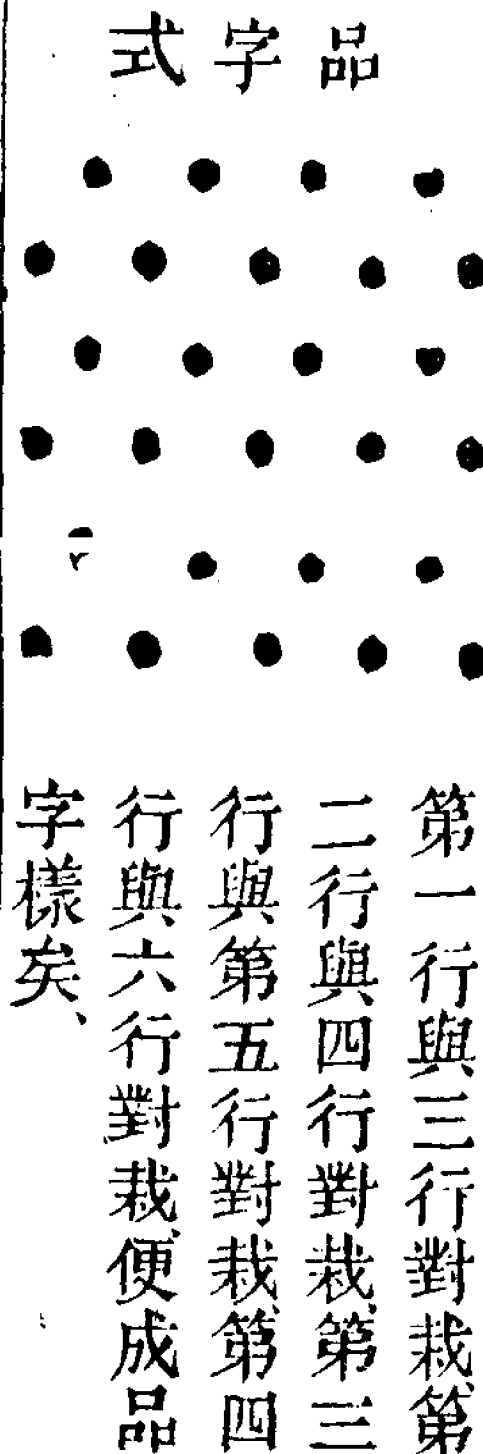 品字式
第一行與三行對栽、第
二行與四行對栽、第三
行與第五行對栽、第四
行與六行對栽、便成品
字樣矣、